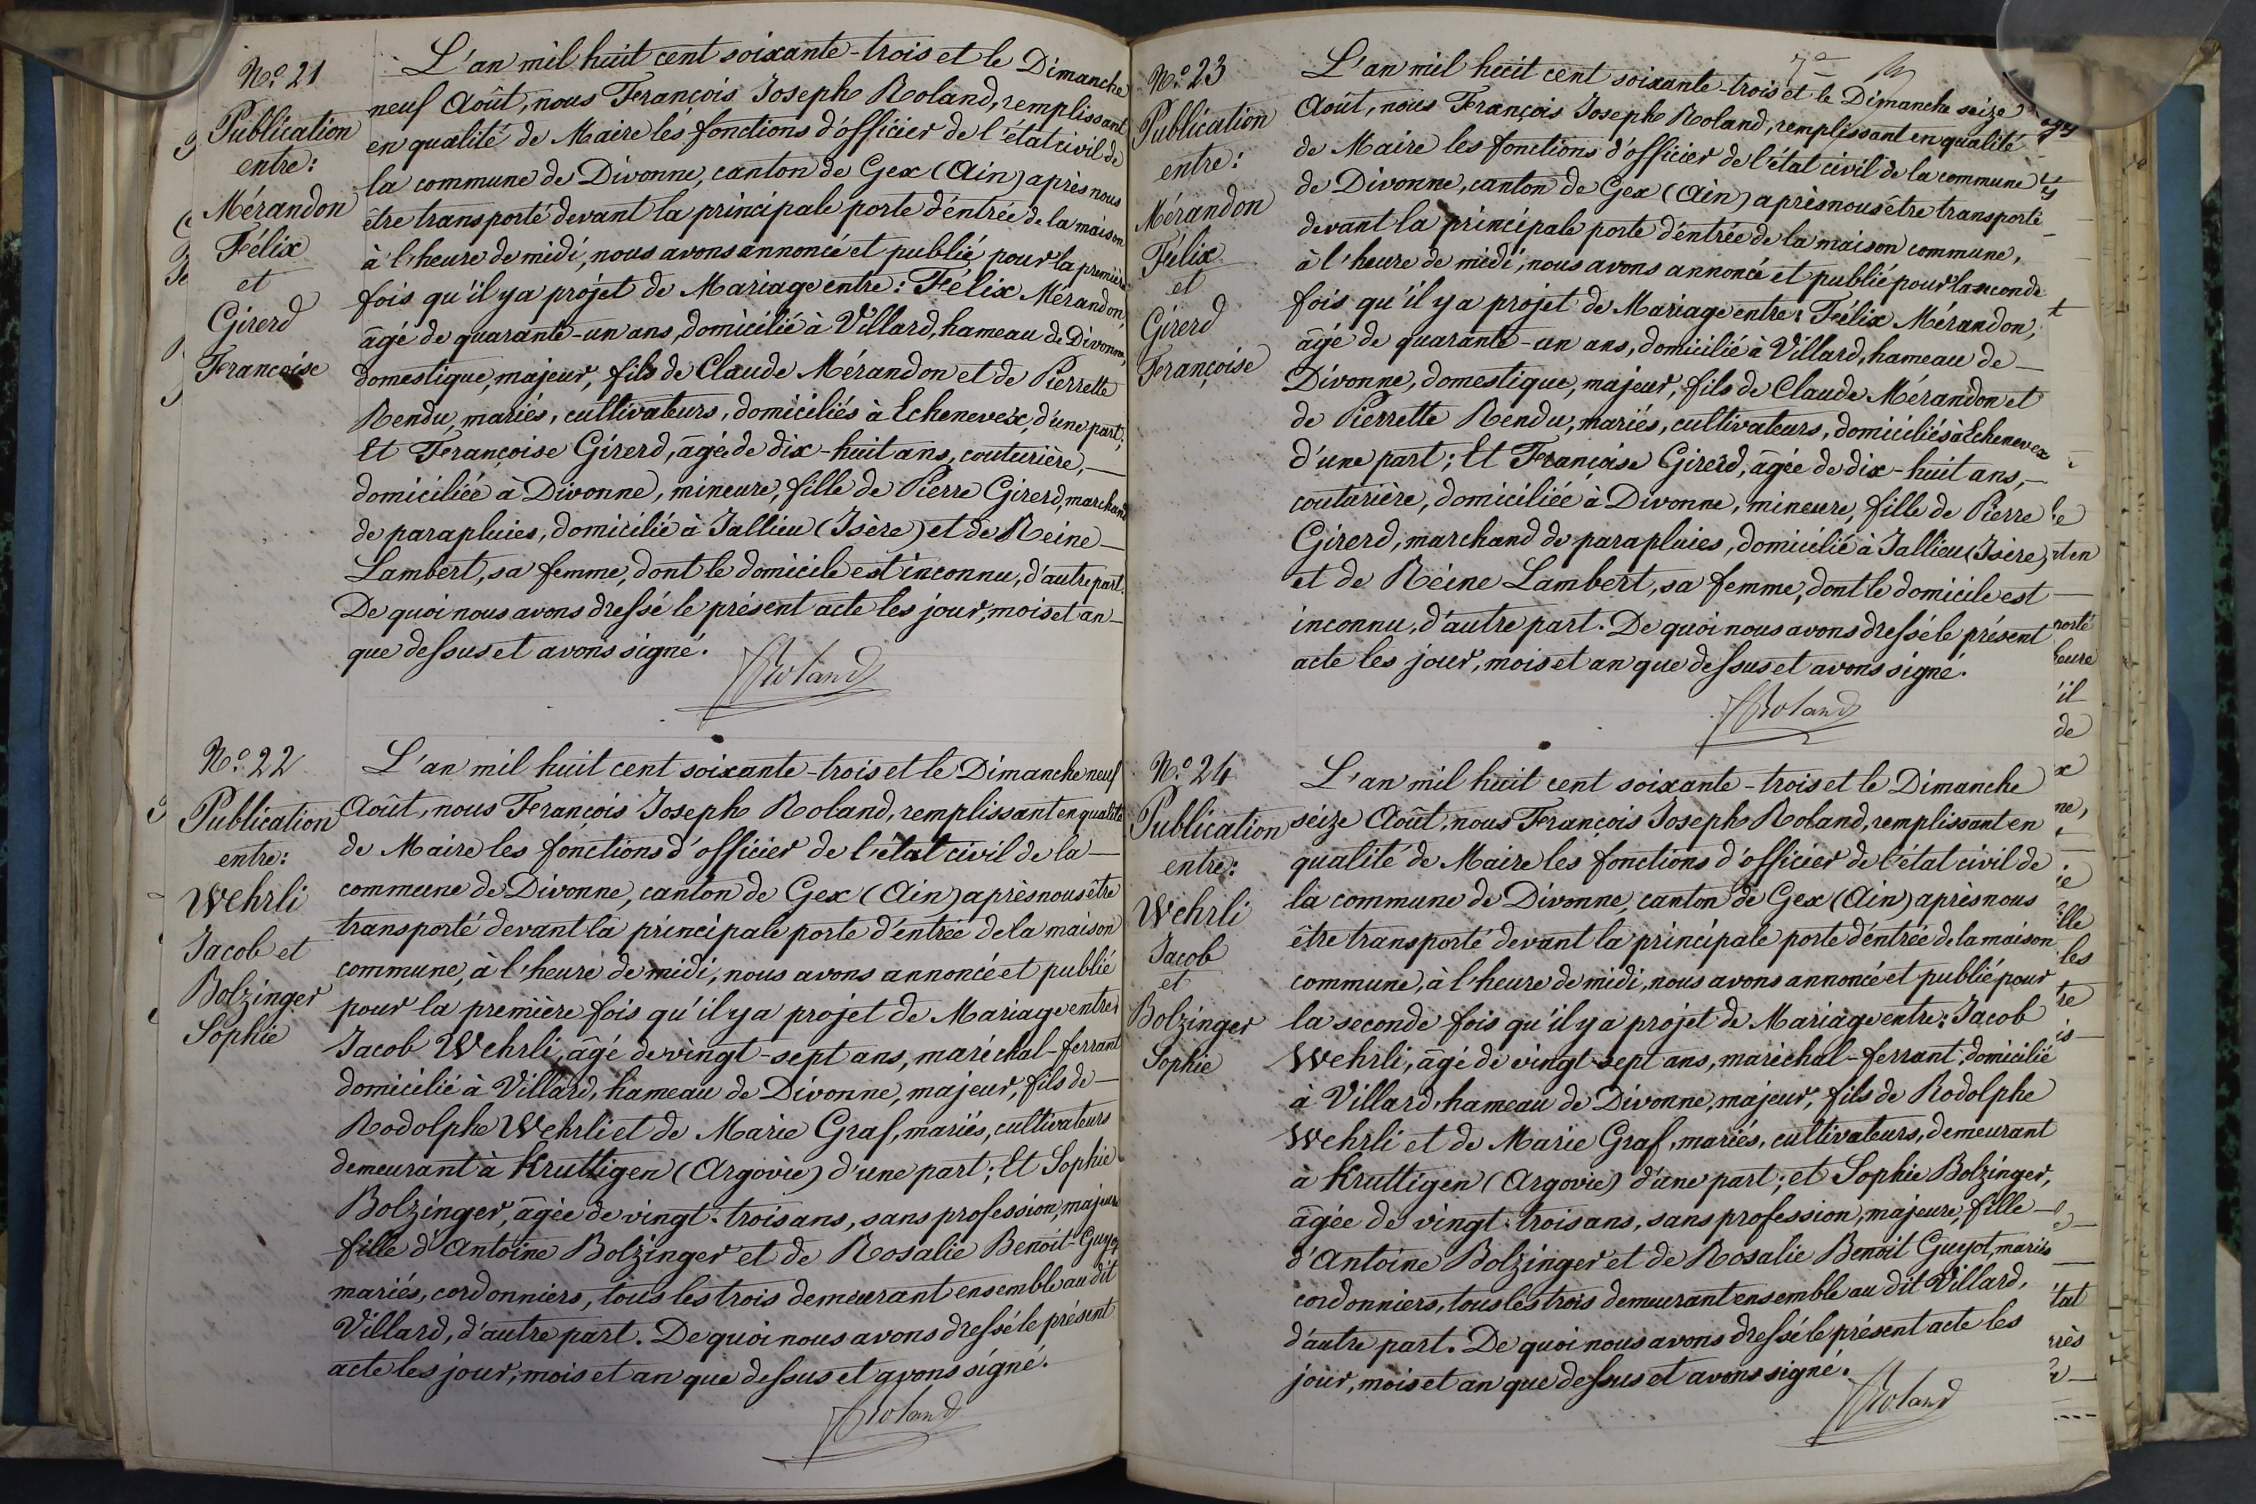 N.º 21
Publication
entre:
Mérandon
Félix
et
Girerd
Françoise
L'an mil huit cent soixante-trois et le Dimanche
neuf Août, nous François Joseph Roland, remplissant
en qualité de Maire les fonctions d'officier de l'état civil de
la commune de Divonne, canton de Gex (Ain) après nous
être transporté devant la principale porte d'éntrée de la maison
à l'heure de midi, nous avons annoncé et publié, pour la première
fois qu'il y a projet de Mariage entre: Félix Mérandon,
âgé de quarante-un ans, domicilié à Villard, hameau de Divonne,
domestique, majeur, fils de Claude Mérandon et de Pierrette
Rendu, mariés, cultivateurs, domiciliés à Echenevex, d'une part;
Et Françoise Girerd, âgée de dix-huit ans, couturière,
domiciliée à Divonne, mineure, fille de Pierre Girerd, marchand
de parapluies, domicilié à Jallieu (Isère) et de Reine
Lambert, sa femme, dont le domicile est inconnu, d'autre part.
De quoi nous avons dressé le présent acte les jour, mois et an
que dessus et avons signé.
Roland
N.º 22
Publication
entre:
Wehrli
Jacob et
Bolzinger
Sophie
L'an mil huit cent soixante-trois et le Dimanche neuf
Août, nous François Joseph Roland, remplissant en qualité
de Maire les fonctions d'officier de l'état civil de la
commune de Divonne, canton de Gex (Ain) après nous être
transporté devant la principale porte d'éntrée de la maison
commune, à l'heure de midi, nous avons annoncé et publié
pour la première fois qu'il y a projet de Mariage entre:
Jacob Wehrli, âgé de vingt-sept ans, maréchal-ferrant
domicilié à Villard, hameau de Divonne, majeur, fils de
Rodolphe Wehrli et de Marie Graf, mariés, cultivateurs
demeurant à Kruttigen (Argovie) d'une part; Et Sophie
Bolzinger, âgée de vingt-trois ans, sans profession, majeure
fille d'Antoine Bolzinger et de Rosalie Benoit-Guyot
mariés, cordonniers, tous les trois demeurant ensemble au dit
Villard, d'autre part. De quoi nous avons dressé le présent
acte les jour, mois et an que dessus et avons signé.
Roland
N.º 23
Publication
entre:
Mérandon
Félix
et
Girerd
Françoise
L'an mil huit cent soixante-trois et le Dimanche seize
Août, nous François Joseph Roland, remplissant en qualité
de Maire les fonctions d'officier de l'état civil de la commune
de Divonne, canton de Gex (Ain) après nous être transporté
devant la principale porte d'éntrée de la maison commune,
à l'heure de midi, nous avons annoncé et publié pour la seconde
fois qu'il y a projet de Mariage entre: Félix Mérandon,
âgé de quarante-un ans, domicilié à Villard, hameau de
Divonne, domestique, majeur, fils de Claude Mérandon et
de Pierrette Rendu, mariés, cultivateurs, domiciliés à Echenevex
d'une part; Et Françoise Girerd, âgée de dix-huit ans,
couturière, domiciliée à Divonne, mineure, fille de Pierre
Girerd, marchand de parapluies, domicilié à Jallieu (Isère)
et de Reine Lambert, sa femme, dont le domicile est
inconnu, d'autre part. De quoi nous avons dressé le présent
acte les jour, mois et an que dessus et avons signé.
Roland
N.º 24
Publication
entre:
Wehrli
Jacob
et
Bolzinger
Sophie
L'an mil huit cent soixante-trois et le Dimanche
séize Août, nous François Joseph Roland, remplissant en
qualité de Maire les fonctions d'officier de l'état civil de
la commune de Divonne, canton de Gex (Ain) après nous
être transporté devant la principale porte d'éntrée de la maison
commune, à l'heure de midi, nous avons annoncé et publié pour
la seconde fois qu'il y a projet de Mariage entre: Jacob
Wehrli, âgé de vingt-sept ans, maréchal-ferrant, domicilié
à Villard, hameau de Divonne, majeur, fils de Rodolphe
Wehrli et de Marie Graf, mariés, cultivateurs, demeurant
à Kruttigen (Argovie) d'une part; et Sophie Bolzinger,
âgée de vingt-trois ans, sans profession, majeure, fille
d'Antoine Bolzinger et de Rosalie Benoit Guyot, mariés
cordonniers, tous les trois demeurant ensemble au dit Villard,
d'autre part. De quoi nous avons dressé le présent acte les
jour, mois et an que dessus et avons signé.
Roland